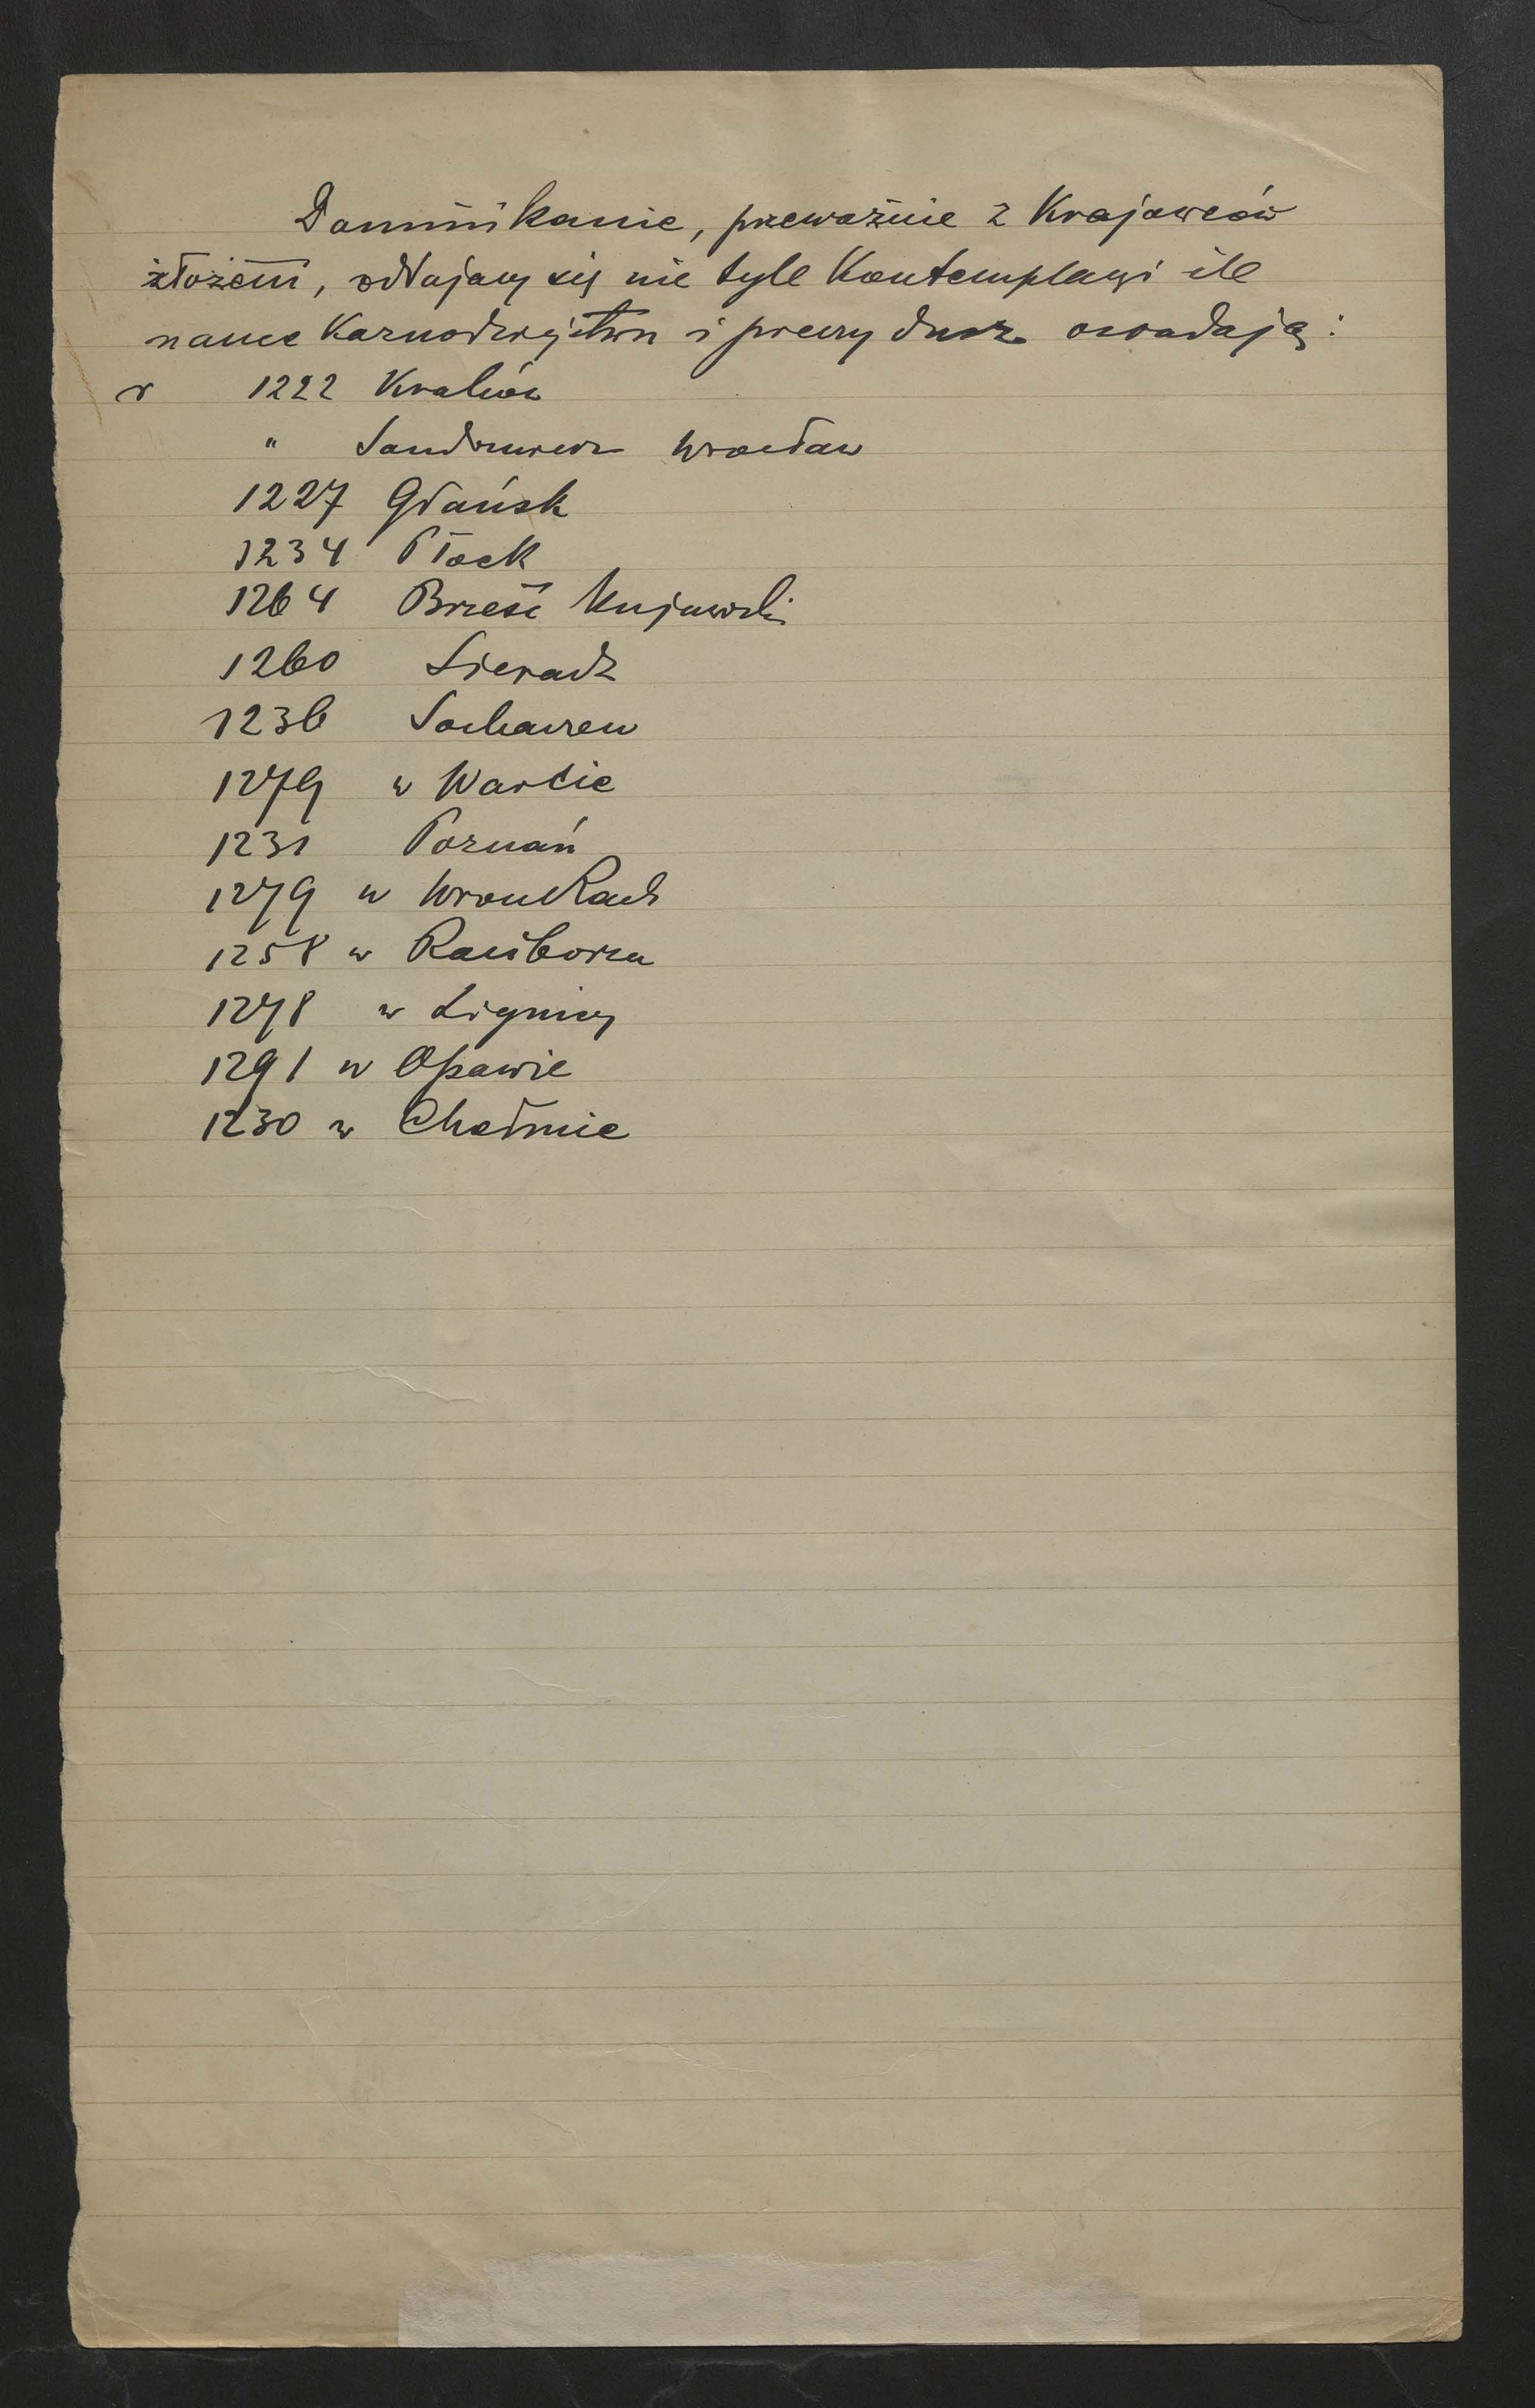 Dominikanie, przeważnie z Krajowców
złożeni, oddający się nie tyle Kontemplacyi ile
nauce Kaznodziejstwu i pieczy dusz osiadają:
r 1222 Kraków
" Sandomierz Wrocław
1227 Gdańsk
1234 Płock
1264 Brześć Kujawski
1260 Sieradz
1236 Sochaczew
1279 w Warcie
1231 Poznań
1279 w Wronkach
1258 w Raciborzu
1278 w Lignicy
1291 w Opawie
1230 w Chełmie